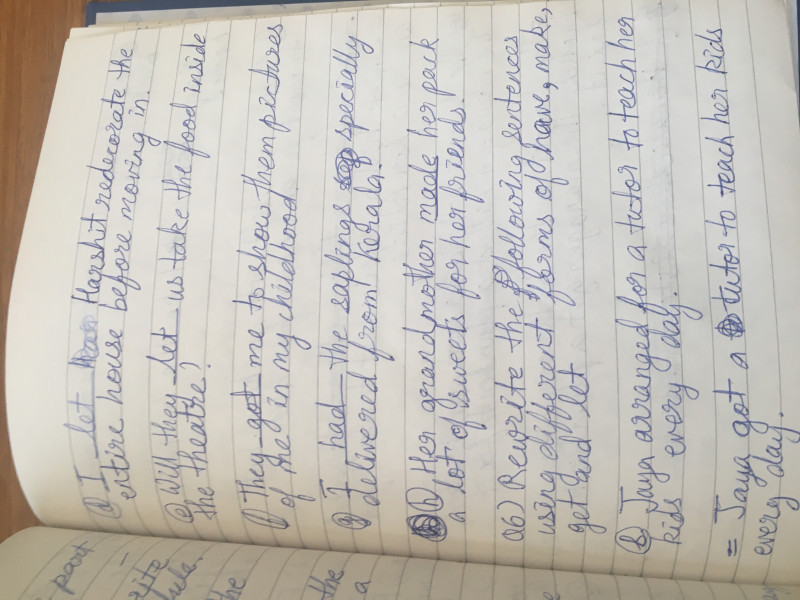 (d) I let Harshit redecorate the
entire house before moving in.
(e) Will they let us take the food inside
the theatre?
(f) They got me to show them pictures
of me in my childhood.
(g) I had the saplings specially
delivered from Kerala.
(h) Her grandmother made her pack
a lot of sweets for her friends.
Q6) Rewrite the following sentences
using different forms of have, make,
get and let
(b) Jaya arranged for a tutor to teach her
kids every day.
= Jaya got a tutor to teach her kids
every day.
part
the
the
a